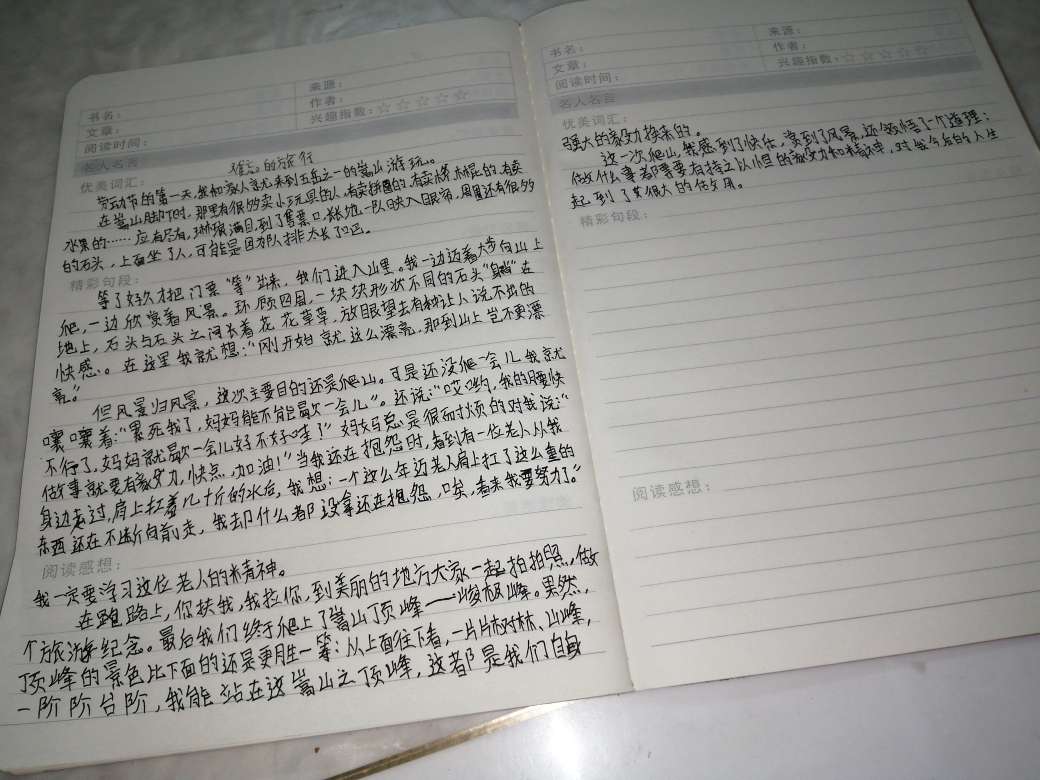 书名：
来源：
文章：
作者：
阅读时间：
兴趣指数：☆☆☆☆☆
名人名言
难忘的旅行
优美词汇：
劳动节的第一天，我和家人首先来到五岳之一的嵩山游玩。
在嵩山脚下时，那里有很多卖小玩具的人，有卖拼图的，有卖棒棍的，有卖
水果的……应有尽有，琳琅满目，到了售票口，长长地一队映入眼帘，周围还有很多
的石头，上面坐了人，可能是因为队排太长了吧。
精彩句段：
等了好久才把门票“等”出来，我们进入山里。我一边迈着大步向山上
爬，一边欣赏着风景。环顾四周，一块块形状不同的石头“躺”在
地上，石头与石头之间长着花花草草，放眼望去有种让人说不出的
快感。在这里我就想：“刚开始就这么漂亮，那到山上岂不更漂
亮。”
但风景归风景，这次主要目的还是爬山。可是还没爬一会儿我就
嚷嚷着：“累死我了，妈妈能不能歇一会儿”。还说：“哎哟，我的腰快
不行了，妈妈就歇一会儿好不好哇！”妈妈总是很耐烦的对我说：“
做事就要有毅力，快点，加油！”当我还在抱怨时，看到有一位老人从我
身边走过，肩上扛着几十斤的水后，我想：一个这么年迈老人肩上扛了这么重的
东西还在不断向前走，我却什么都没拿还在抱怨，唉，看来我要努力了。”
阅读感想：
我一定要学习这位老人的精神。
在跑路上，你扶我，我拉你，到美丽的地方大家一起拍拍照，做
个旅游纪念。最后我们终于爬上了嵩山顶峰——峻极峰。果然，
顶峰的景色比下面的还是更胜一筹：从上面往下看，一片片树林、山峰，
一阶阶台阶，我能站在这嵩山之顶峰，这都是我们自身
书名：
来源：
文章：
作者：
阅读时间：
兴趣指数：☆☆☆☆☆
名人名言
优美词汇：
强大的毅力换来的。
这一次爬山，我感到了快乐，赏到了风景，还领悟了一个道理：
做什么事都需要有持之以恒的毅力和精神，对我今后的人生
起到了很大的做用。
精彩句段：
阅读感想：